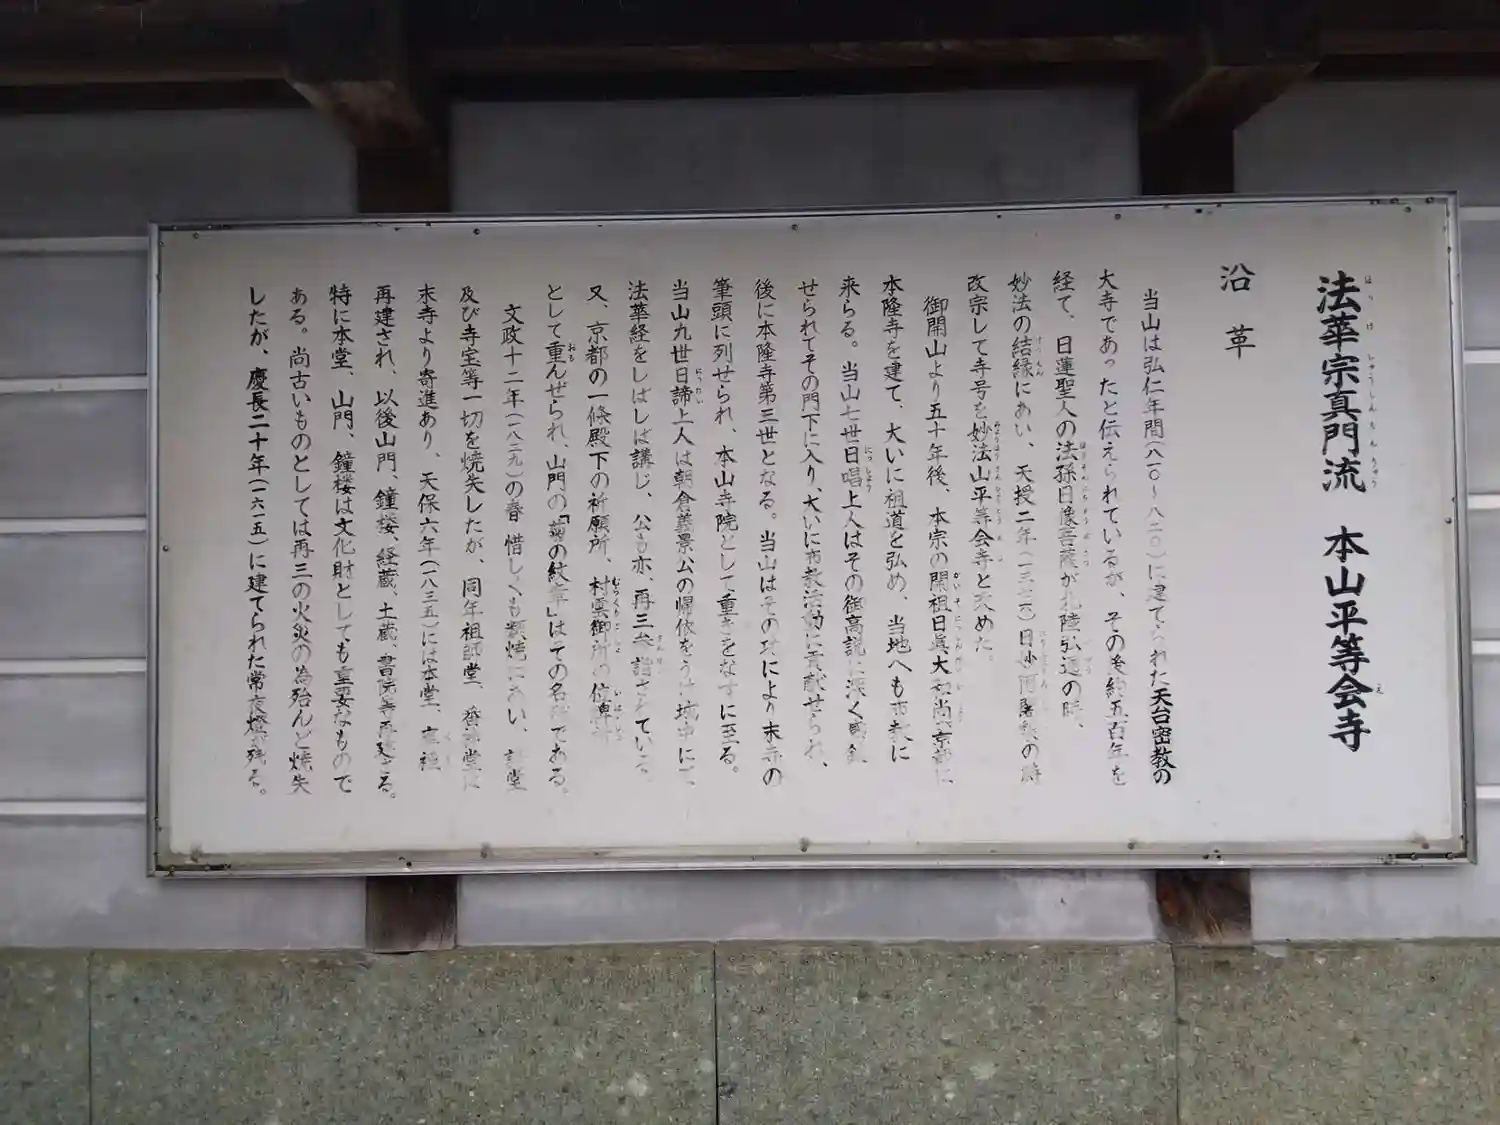 法華宗真門流 本山平等会寺
沿革
当山は弘仁年間(八一〇〜八二〇)に建てられた天台密教の
大寺であったと伝えられているが、その後約五百年を
経て、日蓮聖人の法孫日像菩薩が北陸弘通の時、
妙法の結縁にあい、天授二年(一三七六)日 の時
改宗して寺号を妙法山平等会寺と改めた。
御開山より五十年後、本宗の開祖日眞大和尚京都に
本隆寺を建て、大いに祖道を弘め、当地へも布教に
来らる。当山七世日唱上人はその御高説に深く感銘
せられてその門下に入り、大いに布教活動に貢献せられ、
後に本隆寺第三世となる。当山はその功により末寺の
筆頭に列せられ、本山寺院として重きをなすに至る。
当山九世日諦上人は朝倉義景公の帰依をうけ城中にて
法華経をしばしば講じ、公も亦、再三参詣されている。
又、京都の一條殿下の祈願所、村雲御所の位牌所
として重んぜられ、山門の「菊の紋章」はその名残である。
文政十二年(一八二九)の春惜しくも類焼にあい、 堂
及び寺宝等一切を焼失したが、同年祖師堂、番神堂は
末寺より寄進あり、天保六年(一八三五)には本堂、庫裡
再建され、以後山門、鐘楼、経蔵、土蔵、書院等再建さる。
特に本堂、山門、鐘楼は文化財としても重要なもので
ある。尚古いものとしては再三の火災の為殆んど焼失
したが、慶長二十年(一六一五)に建てられた常夜燈が残る。